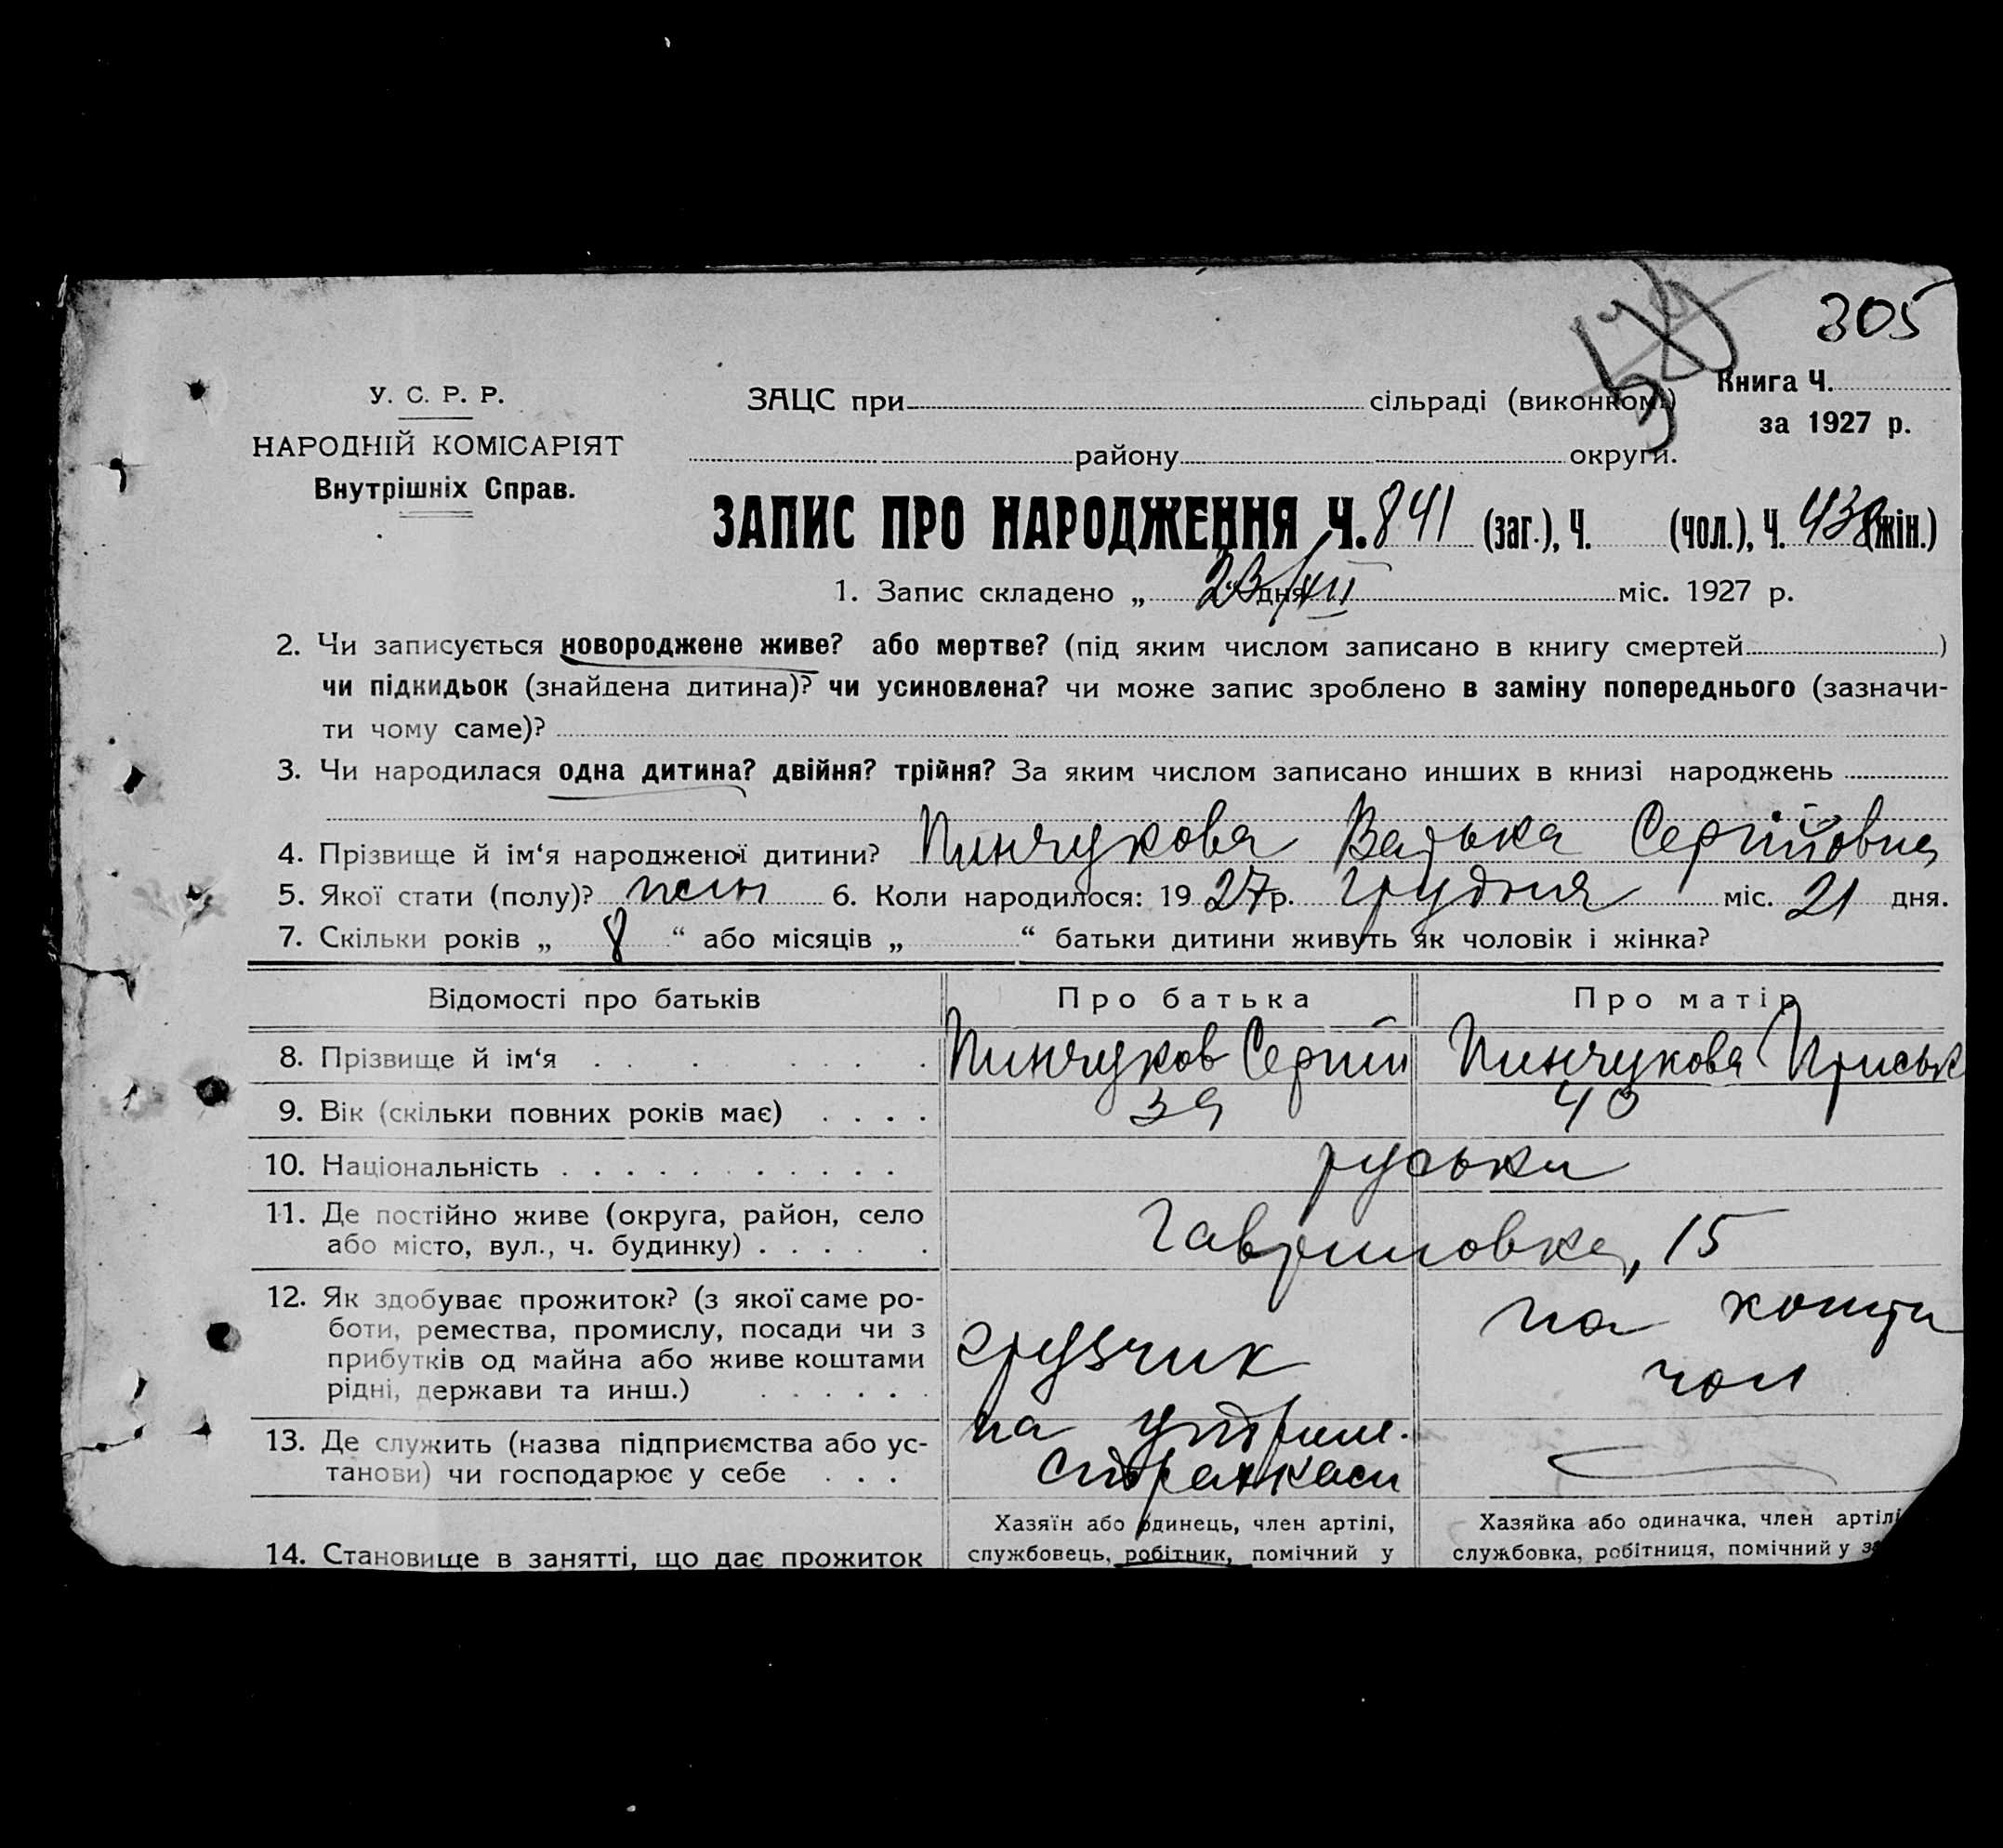 305
У. С. Р. Р.
НАРОДНІЙ КОМІСАРІЯТ
Внутрішніх Справ.
ЗАЦС при сільраді (виконкомі)
району округи.
Книга Ч.
за 1927 р.
ЗАПИС ПРО НАРОДЖЕННЯ Ч. 841 (заг.), Ч. (чол.), Ч. 438 (жін.)
1. Запис складено „ 23/XII “ дня міс. 1927 р.
2. Чи записується новороджене живе? або мертве? (під яким числом записано в книгу смертей )
чи підкидьок (знайдена дитина)? чи усиновлена? чи може запис зроблено в заміну попереднього (зазначи-
ти чому саме)?
3. Чи народилася одна дитина? двійня? трійня? За яким числом записано инших в книзі народжень
4. Прізвище й ім‘я народженої дитини? Пинчукова Сергійовна
5. Якої стати (полу)? жін 6. Коли народилося: 1927 р. грудня міс. 21 дня.
7. Скільки років „ 8 “ або місяців „ “ батьки дитини живуть як чоловік і жінка?
Відомості про батьків Про батька Про матір
8. Прізвище й ім‘я Пинчуков Сергій Пинчукова
9. Вік (скільки повних років має) 39 40
10. Національність руськи
11. Де постійно живе (округа, район, село
або місто, вул., ч. будинку) Гавриловка, 15
12. Як здобуває прожиток? (з якої саме ро-
боти, ремества, промислу, посади чи з
прибутків од майна або живе коштами
рідні, держави та инш.) грузчик на кошти
чол
13. Де служить (назва підприємства або ус-
танови) чи господарює у себе на утрим.
страхкаси
14. Становище в занятті, що дає прожиток
Хазяїн або одинець, член артілі,
службовець, робітник, помічний у
Хазяйка або одиначка, член артілі
службовка, робітниця, помічний у